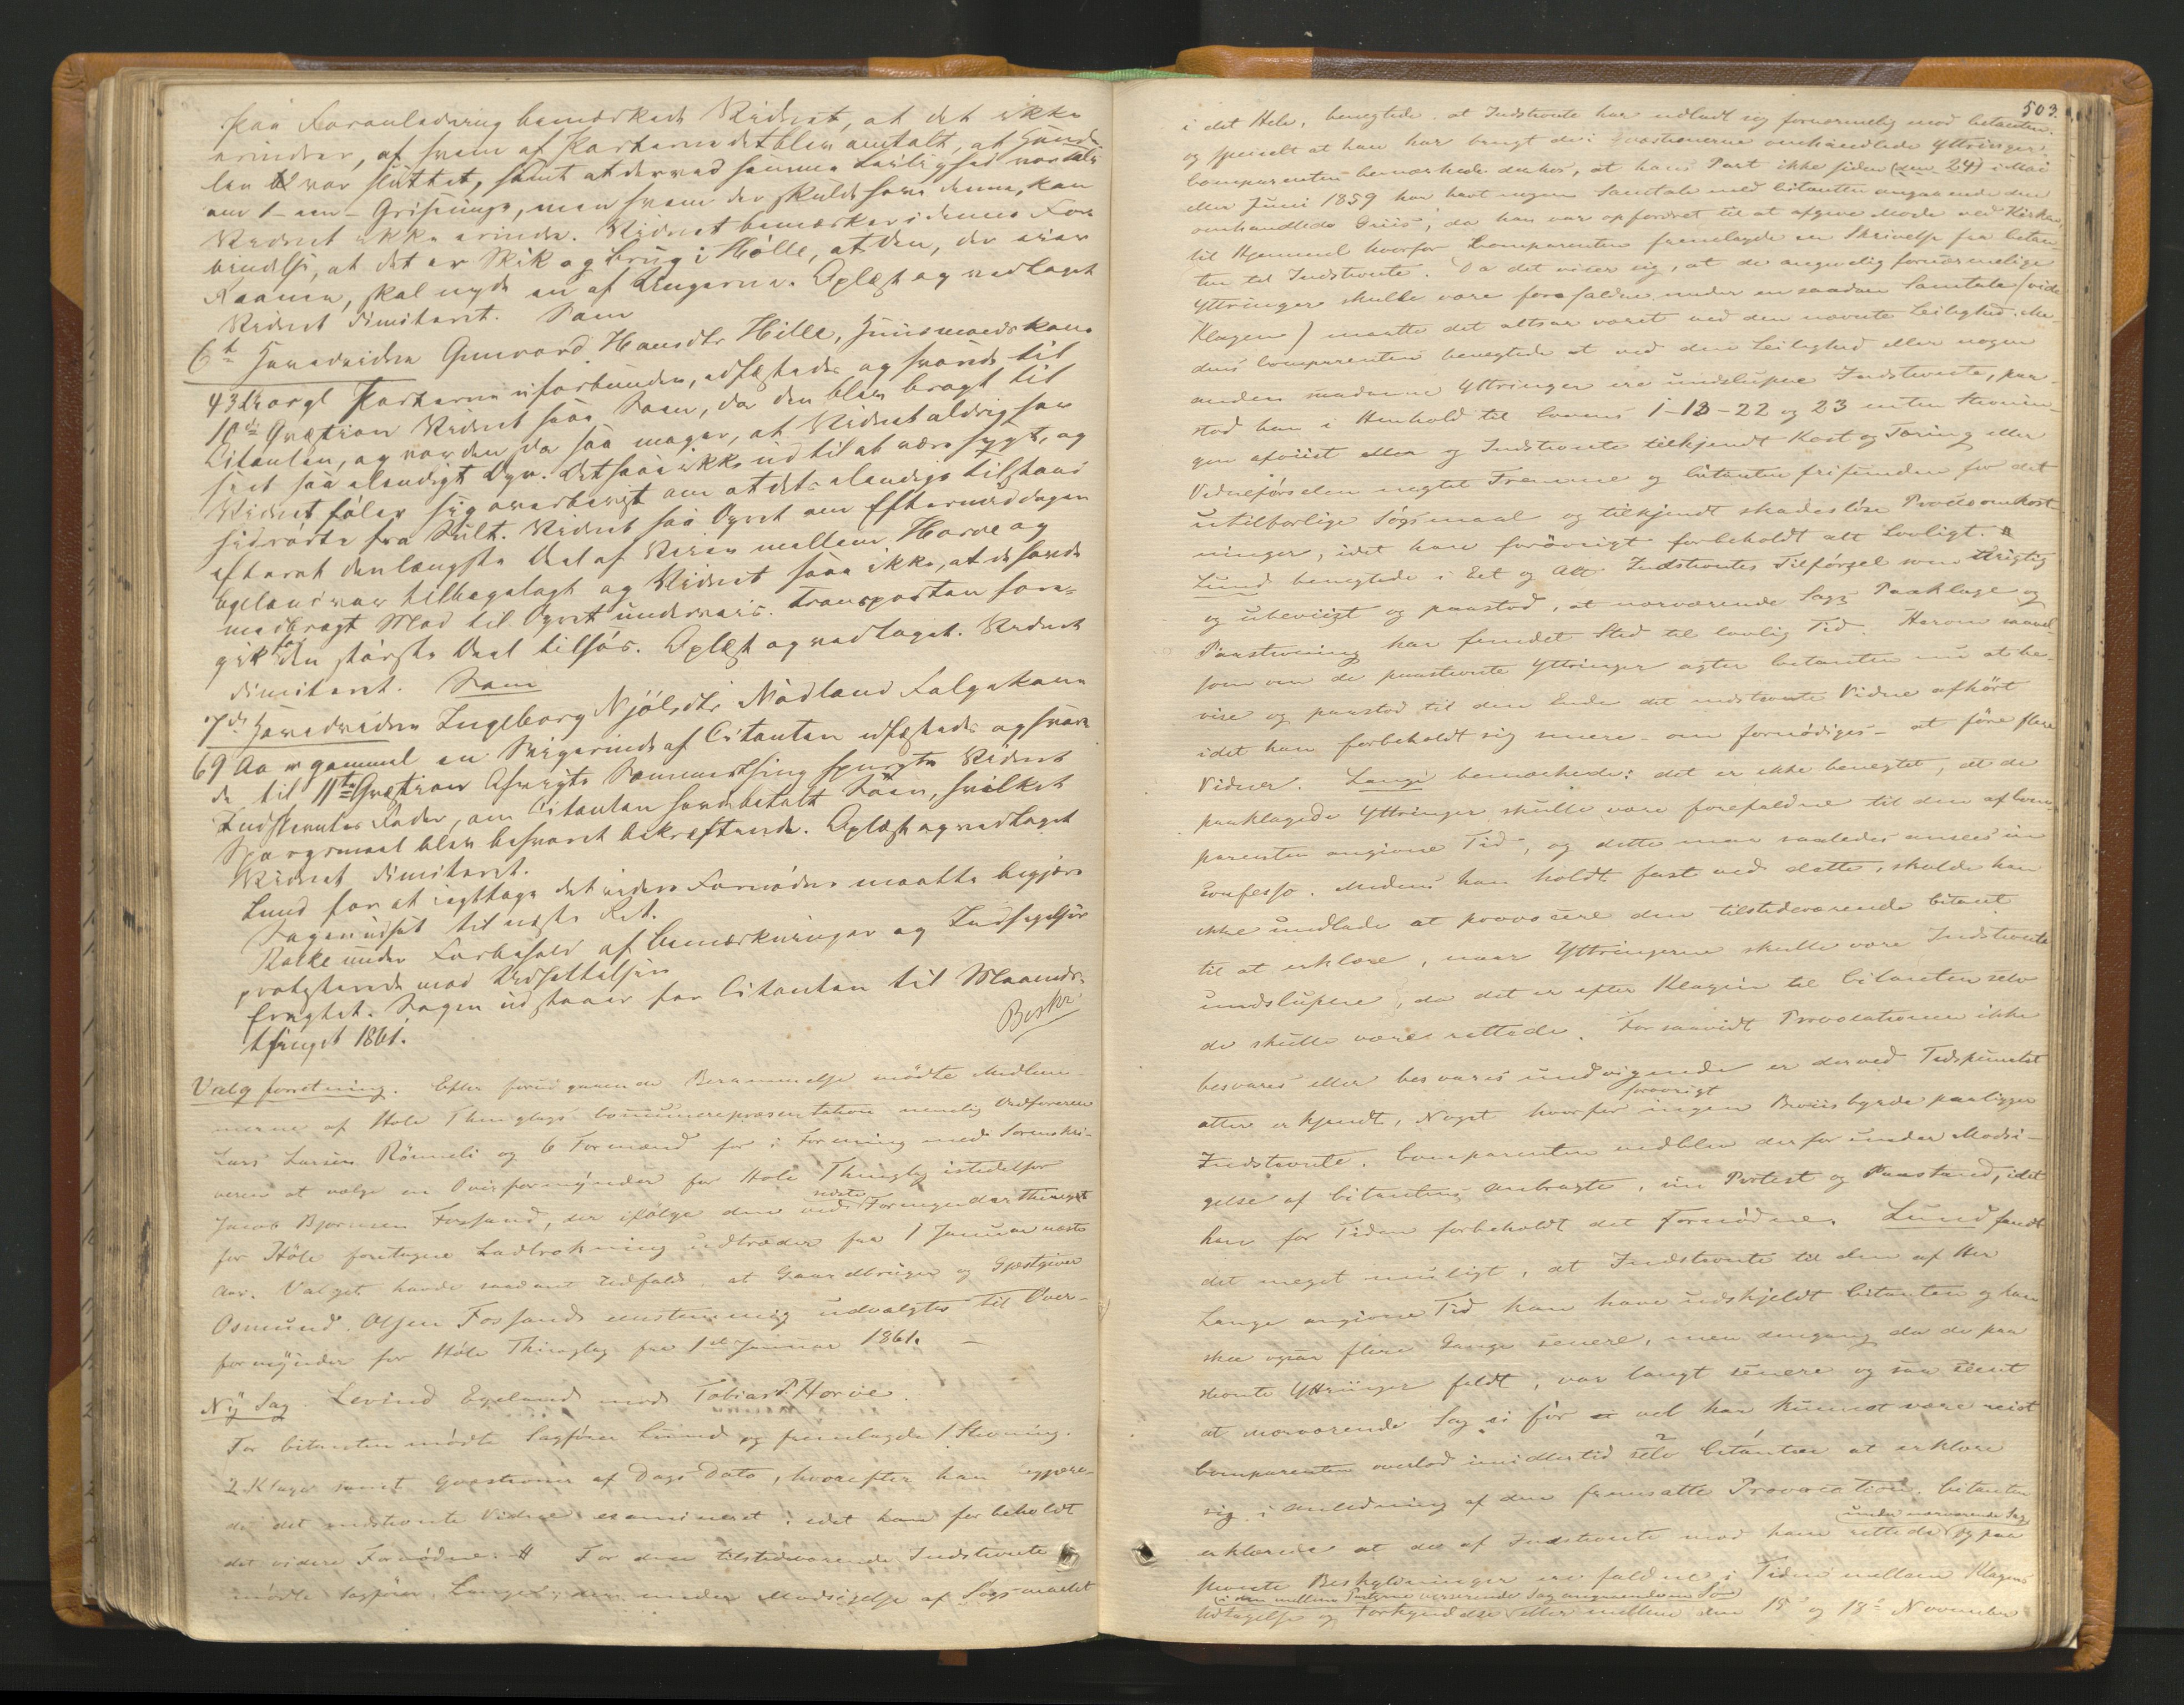 paa Foranledning bemærkede Vidnet, at det ikke
erindrer, af hvem af Parterne det blev omtalt, at Hande-
len var sluttet, samt at derved samme Leilighed var tale
om 1 – een – Grisunge, men hvem der skulde have denne, kan
Vidnet ikke erindre. Vidnet bemærker i denne For-
bindelse, at det er Skik og brug i Hölle, at den, der eier
Raanen, skal nyde en af Ungerne. Oplæst og vedtaget
Vidnet dimiteret. Som
6te Hovedvidne Gunvord Hansdtr Hille, Huusmandskone
43 Aar gl Parterne uforbunden, edfæstedes og svarede til
10de Qvæstion Vidnet saa Soen, da den blev bragt til
Citanten, og var den da saa mager, at Vidnet aldrig har
seet saa elendigt Dyr. Det saa ikke ud til at være sygt, og
Vidnet föler sig overbeviist om at dets elendige tilstand
hidrörte fra Sult. Vidnet saa Dyret om Eftermiddagen
efterat den længste Deel af Veien mellem Horve og
Egeland var tilbagelagt og Vidnet saa ikke, at de havde
medbragt Mad til Dyret underveis. Transporten fore-
gik for den störste Deel tilsös. Oplæst og vedtaget. Vidnet
dimiteret. Som
7de Hovedvidne Ingeborg Njölsdtr Nådland Folgekone
69 Aar gammel en Svigerinde af Citanten edfæstedes og svare-
de til 11te Qvæstion Afvigte Sommerthing spurgte Vidnet
Indstevntes Fader, om Citanten havde betalt Soen, hvilket
Spörgsmaal blev besvaret bekræftende. Oplæst og vedtaget
Vidnet dimiteret.
Lund for at iagttage det videre Fornödne maatte begjære
Sagen udsat til næste Ret.
Rolke under Forbehold af Bemærkninger og Indsigelser
protesterede mod Udsættelsen
Eragtet. Sagen udstaaer for Citanten til Maaneds-
thinget 1861.
Beskr.
Valgforretning. Efter forudgaaende Berammelse mödte Medlem-
merne af Hole Thinglags Communerepræsentation nemlig Ordföreren
Lars Larsen Rönneli og 6 Formænd for i Forening med Sorenskri-
veren at vælge en Overformynder for Hole Thinglag istedetfor
Jacob Bjornsen Fossand, der ifölge den ved sidste Foraarsthinget
for Höle foretagne Lodtrækning udtræder fra 1 Januar næste
Aar. Valget havde saadant Udfald, at Gaardbruger og Gjæstgiver
Osmund Olsen Fossand eenstemmig udvalgtes til Over-
formynder for Höle Thinglag fra 1ste Januar 1861. –
Ny Sag. Levind Egeland mod Tobias T. Horve.
For Citanten mödte Sagförer Lund og fremlagde 1 Stevning.
2 Klage samt Qvæstioner af Dags Dato, hvorefter han begjære-
de det indstevnte Vidne examineret, idet han forbeholdt
det videre Fornödne. # For den tilstedeværende Indstevnte
mödte Sagförer Lange, der under Modsigelse af Søgsmaalet
503.
i det Hele, benegtede, at Indstevnte har udladt sig fornærmelig mod Citanten.
og specielt at han har brugt de i Qvæstionerne omhandlede Yttringer.
Comparenten bemærkede derhos, at hans Part ikke siden (den 24) i Mai
eller Juni 1859 har havt nogen Samtale med Citanten angaaende den
omhandlede Griis, da han var opfordret til at afgive Möde ved Kirken,
til Hjemmel hvorfor Comparenten fremlagde en Skrivelse fra Citan-
ten til Indstevnte. Da det viser sig, at de angivelig fornærmelige
Yttringer skulle være forefaldne under en saadan Samtale (vide
Klagen) maatte det altsaa været ved den nævnte Leilighed. Me-
dens Comparenten benegtede at ved den Leilighed eller nogen
anden saadanne Yttringer ere undslupne Indstevnte, paa-
stod han i Henhold til Lovens 1-13-22 og 23 enten Stevnin-
gen afviist eller og Indstevnte tilkjendt Kost og Tæring eller
Vidneförselen negtet Fremme og Citanten frifunden for det
utilbörlige Sögsmaal og tilkjendt skadeslöse Procesomkost-
ninger, idet han forövrigt forbeholdt alt Lovligt. #
Lund benegtede i Eet og Alt Indstevntes Tilförsel som urigtig
og ubeviist og paastod, at nærværende Sags Paaklage og
Paastevning har fundet Sted til lovlig Tid. Herom saavel
som om de paastevnte Yttringer agter Citanten nu at be-
vise og paastod til den Ende det indstevnte Vidne afhört
idet han forbeholdt sig senere – om fornödiges – at före flere
Vidner. Lange bemærkede: det er ikke benegtet, at de
paaklagede Yttringer skulle være forefaldne til den af Com-
parenten angivne Tid, og dette maa saaledes ansees in
Confesso. Medens han holdt fast ved dette, skulde han
ikke undlade at provocere den tilstedeværende Citant
til at erklære, naar Yttringerne skulle være Indstevnte
undslupne, da det er efter Klagen til Citanten selv
de skulle være rettede. Forsaavidt Provocationen ikke
besvares eller besvares undvigende er derved Tidspunctet
atter erkjendt, Noget hvorfor forövrigt ingen Beviisbyrde paaligger
Indstevnte. Comparenten vedblev derfor under Modsi-
gelse af Citantens Anbragte, sin Protest og Paastand, idet
han for Tiden forbeholdt det Fornødne. Lund fandt
det meget muligt, at Indstevnte til den af Her
Lange angivne Tid kan have udskjeldt Citanten og kan-
skee ogsaa flere Gange senere, men dengang da de paa-
stevnte Yttringer feldt, var langt senere og saa seent
at nærværende Sag ei för vel har kunnet være reist
Comparenten overlod imidlertid selv Citanten at erklære
sig i Anledning af den fremsatte Provocation. Citanten
erklærede at de af Indstevnte mod ham under nærværende Sag rettede og paa-
stevnte Beskyldninger ere faldne i Tiden mellem Klagens
Udtagelse og Forkyndelse i den mellem Parterne verserende Sag angaaende en So eller mellem den 15de og 18de November